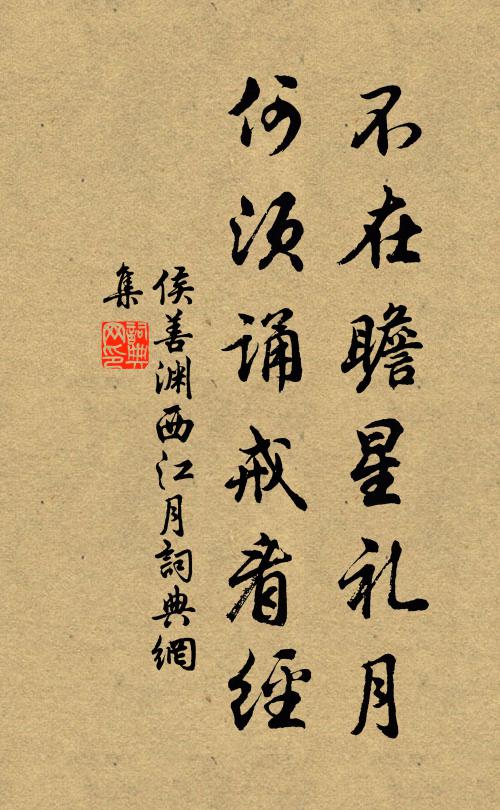 不在瞻星礼月
何须诵戒看经
侯善渊西江月詞典網
集
詞典
网印